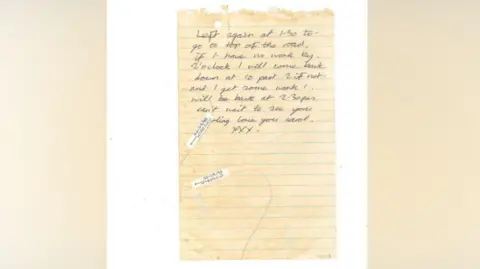 Left again at 1-30 to
go to top of the road.
if I have no work by
2'oclock I will come back
down at 10 past 2 if not
and I get some work I
will be back at 2-30pm
can't wait to see you
love you
XXX.